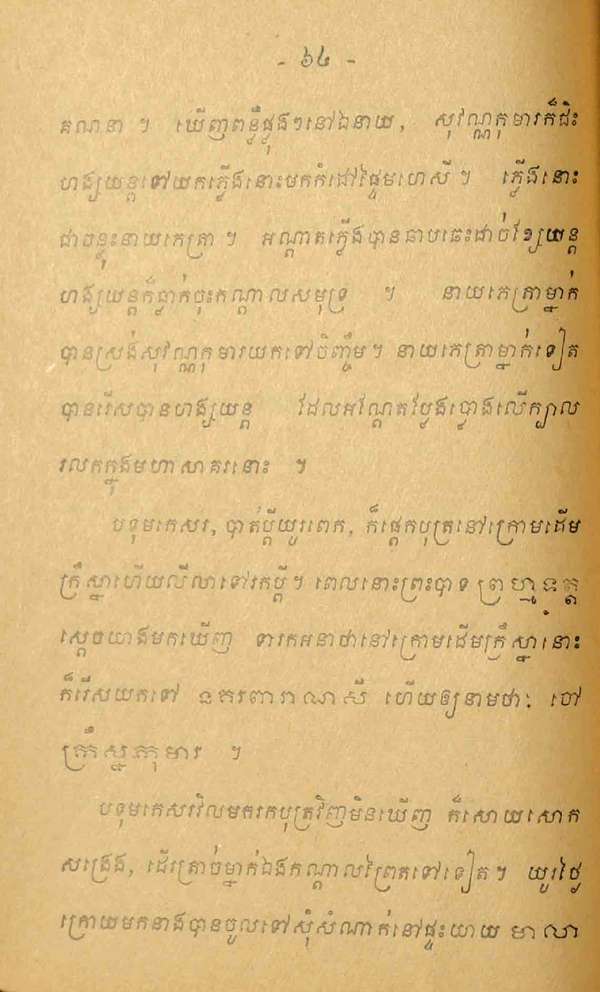 - ៦៤ -
គណនា ។ ឃើញពន្លឺផ្លុងៗនៅឯនាយ, សុវណ្ណកុមារក៏ជិះ
ហង្សយន្តទៅយកភ្លើងនោះមកកំដៅផ្ទៃមហេសី ។ ភ្លើងនោះ
ជាចន្លុះនាយកេត្រា ។ អណ្តាតភ្លើងបានឆាបឆេះដាច់ខ្សែយន្ត
ហង្សយន្តក៏ធ្លាក់ចុះកណ្តាលសមុទ្រ ។ នាយកេត្រាម្នាក់
បានស្រង់សុវណ្ណកុមារយកទៅចិញ្ចឹម។ នាយកេត្រាម្នាក់ទៀត
បានរើសបានហង្សយន្ត ដែលអណ្តែតប្លែងប្លោងលើក្បាល
រលកក្នុងមហាសាគរនោះ ។
បទុមកេសរ, បាត់ប្តីយូរពេក, ក៏ផ្តេកបុត្រនៅក្រោមដើម
ក្រឹស្នាហើយលីលាទៅរកប្តី។ ពេលនោះព្រះបាទ ព្រហ្មទត្ត
ស្តេចយាងមកឃើញ ទារកអនាថានៅក្រោមដើមក្រឹស្នានោះ
ក៏រើសយកទៅ នគរពារាណសី ហើយឲ្យនាមថា: ចៅ
ក្រឹស្នកុមារ ។
បទុមកេសរវិលមករកបុត្រវិញមិនឃើញ ក៏សោយសោក
សង្រេង, ដើរត្រាច់ម្នាក់ឯងកណ្តាលព្រៃតទៅទៀត។ យូរថ្ងៃ
ក្រោយមកនាងបានចូលទៅសុំសំណាក់នៅផ្ទះយាយ មាលា